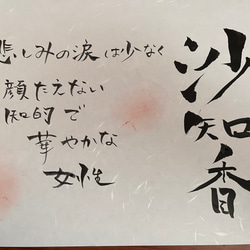 沙知香
悲しみの涙は少なく
顔たえない
知的で
華やかな
女性